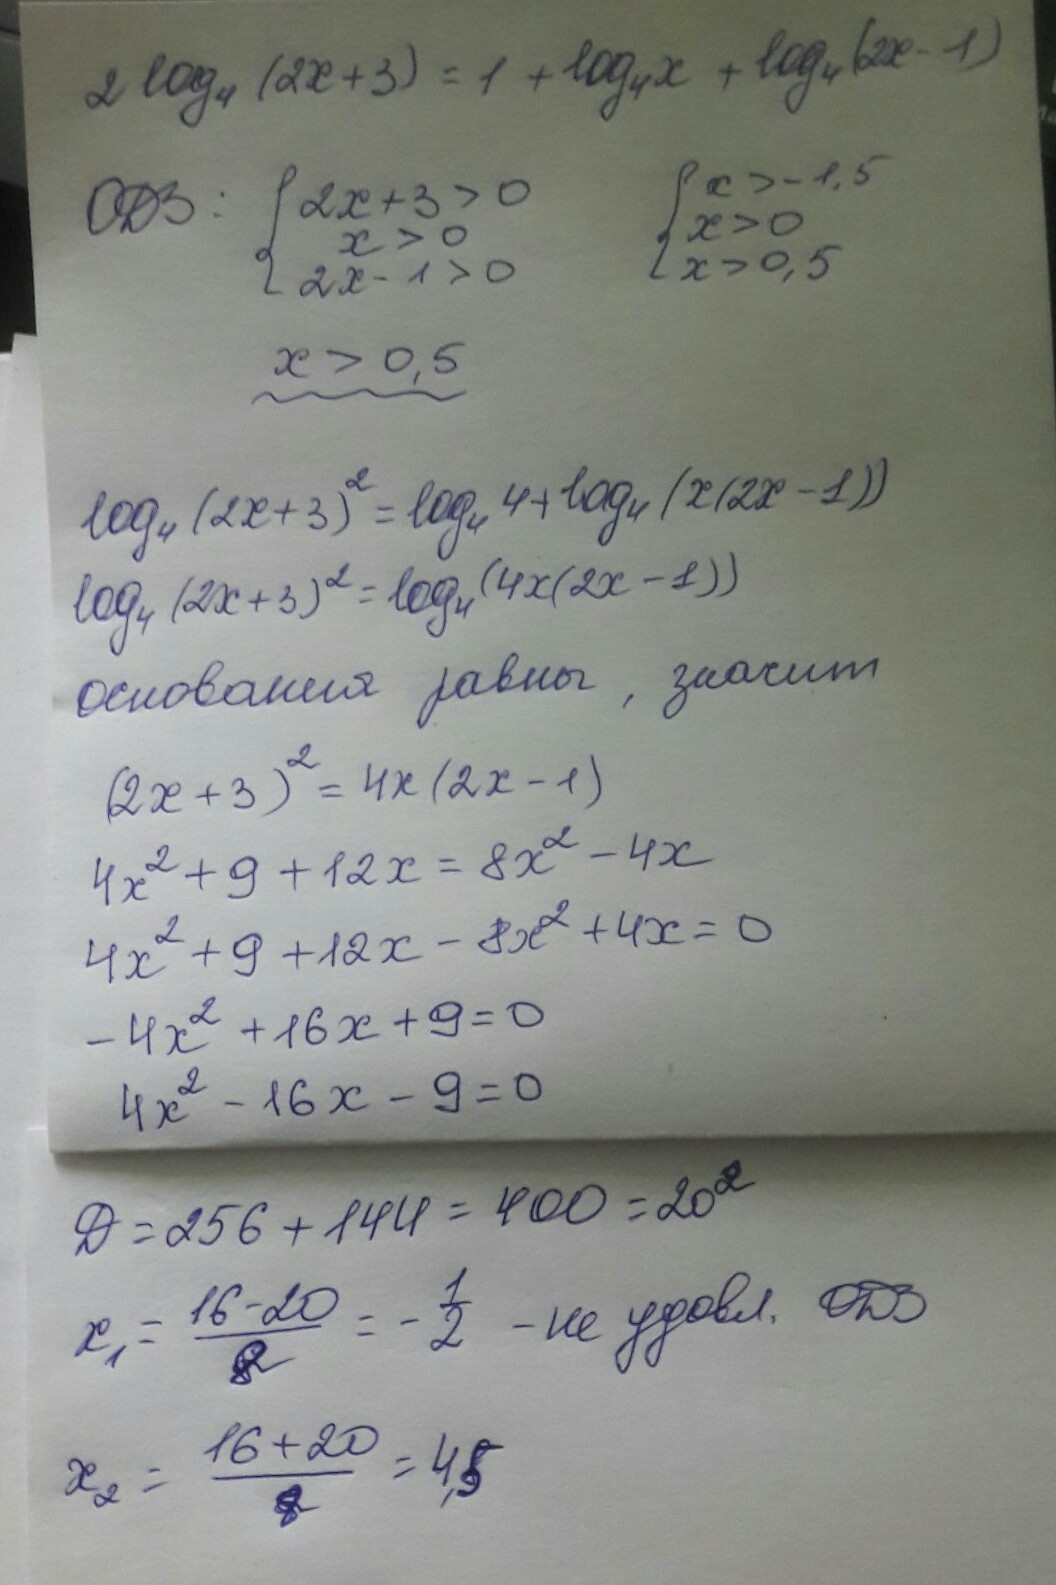 2 log₄ (2x+3) = 1 + log₄x + log₄(2x-1)
ОДЗ: { 2x+3>0 { x>-1,5
x>0 x>0
2x-1>0 x>0,5
x>0,5
log₄ (2x+3)² = log₄ 4 + log₄ (x(2x-1))
log₄ (2x+3)² = log₄ (4x(2x-1))
основания равны, значит
(2x+3)² = 4x(2x-1)
4x² + 9 + 12x = 8x² - 4x
4x² + 9 + 12x - 8x² + 4x = 0
-4x² + 16x + 9 = 0
4x² - 16x - 9 = 0
Д = 256 + 144 = 400 = 20²
x₁ = (16-20)/8 = -1/2 - не удовл. ОДЗ
x₂ = (16+20)/8 = 4,5